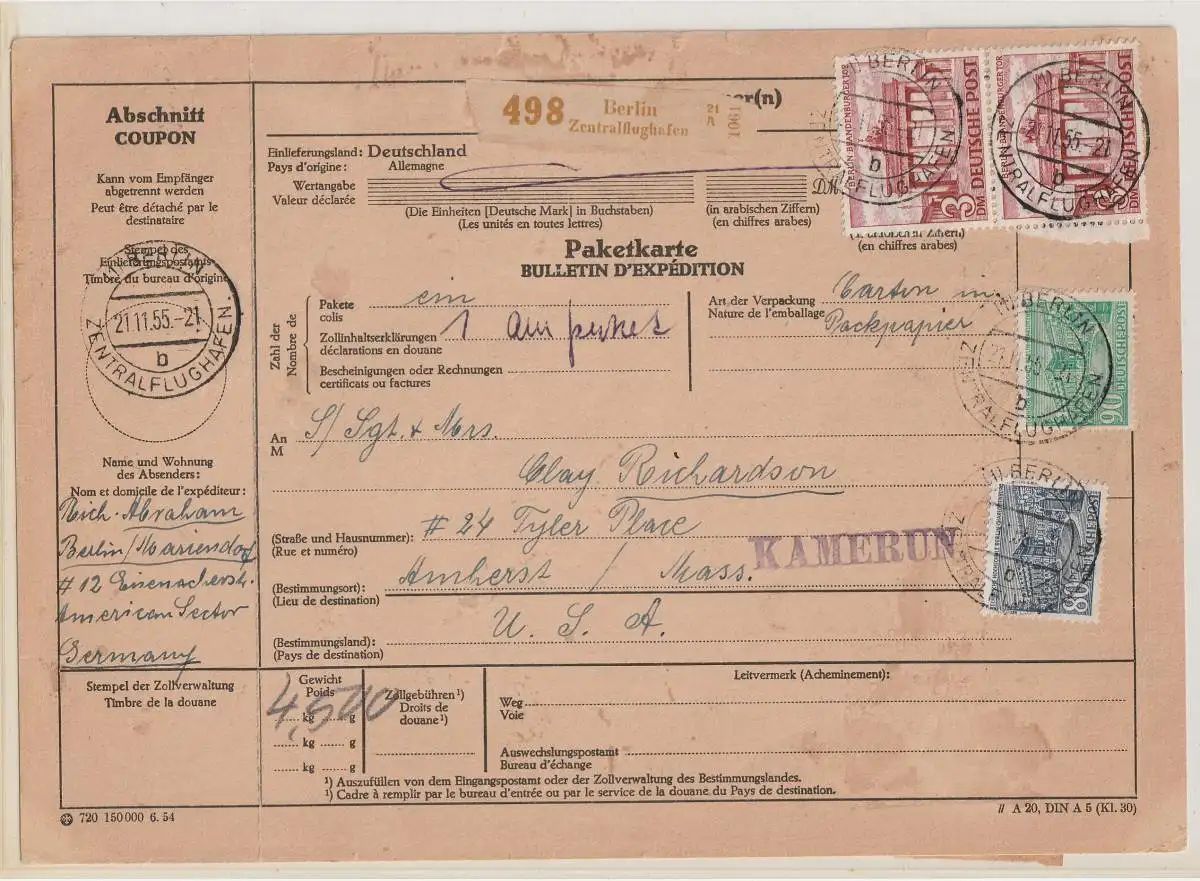 Abschnitt
COUPON
Kann vom Empfänger
abgetrennt werden
Peut être détaché par le
destinataire
Stempel des
Einlieferungspostamts
Timbre du bureau d'origine
(1) BERLIN
21.11.55.-21
b
ZENTRALFLUGHAFEN
Name und Wohnung
des Absenders:
Nom et domicile de l'expéditeur:
Rich. Abraham
Berlin/Mariendorf
# 12 Eisenacherstr.
American Sector
Germany
Stempel der Zollverwaltung
Timbre de la douane
498 Berlin
Zentralflughafen
21
A
1061
er(n)
Einlieferungsland: Deutschland
Pays d'origine: Allemagne
Wertangabe
Valeur déclarée
DM
(Die Einheiten [Deutsche Mark] in Buchstaben)
(Les unités en toutes lettres)
(in arabischen Ziffern)
(en chiffres arabes)
(en chiffres arabes)
Paketkarte
BULLETIN D'EXPÉDITION
Zahl der
Nombre de
Pakete
colis
ein
Zollinhaltserklärungen
déclarations en douane
1
Bescheinigungen oder Rechnungen
certificats ou factures
Art der Verpackung
Nature de l'emballage
Carton in
Packpapier
An
M
S/Sgt. & Mrs.
Clay Richardson
(Straße und Hausnummer):
(Rue et numéro)
# 24 Tyler Place
KAMERUN
(Bestimmungsort):
(Lieu de destination)
Amherst / Mass.
(Bestimmungsland):
(Pays de destination)
U. S. A.
Gewicht
Poids
4,500
kg g
kg g
kg g
Zollgebühren ¹)
Droits de
douane ¹)
Leitvermerk (Acheminement):
Weg
Voie
Auswechslungspostamt
Bureau d'échange
¹) Auszufüllen von dem Eingangspostamt oder der Zollverwaltung des Bestimmungslandes.
¹) Cadre à remplir par le bureau d'entrée ou par le service de la douane du Pays de destination.
720 150000 6. 54
// A 20, DIN A 5 (Kl. 30)
BERLIN BRANDENBURGER TOR
3 DM DEUTSCHE POST
BERLIN BRANDENBURGER TOR
DM DEUTSCHE POST
(1) BERLIN
b
ZENTRALFLUGHAFEN
(1) BERLIN
21.11.55.-21
b
ZENTRALFLUGHAFEN
90 DEUTSCHE POST
(1) BERLIN
b
ZENTRALFLUGHAFEN
80
(1) BERLIN
b